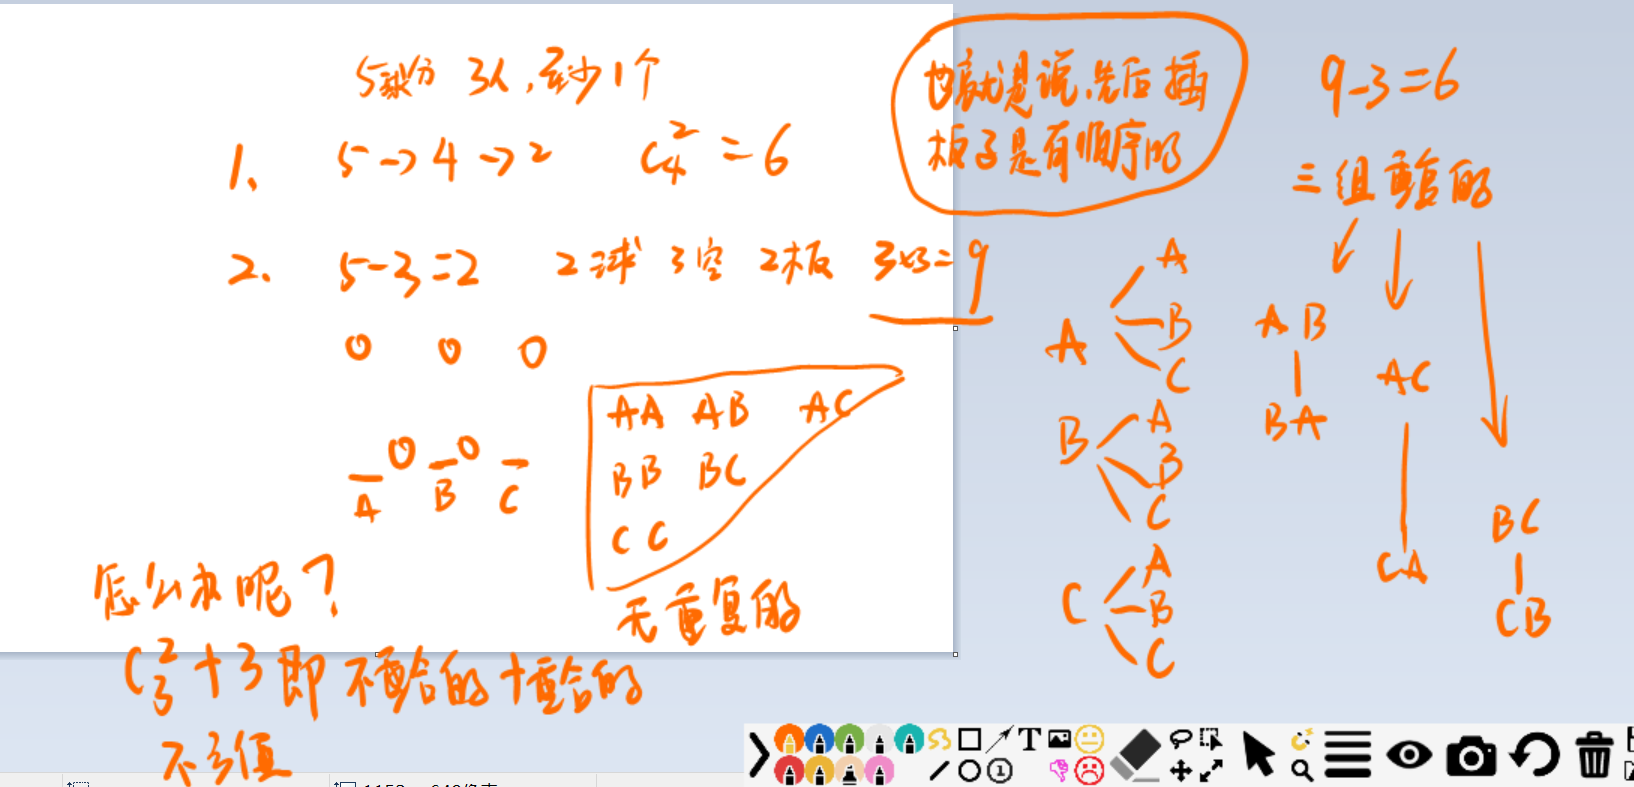 5球分 3人,至少1个
1. 5→4→2 C₄²=6
2. 5-3=2 2球 3空 2板 3×3=9
0 0 0
0 0
A B C
AA AB AC
BB BC
CC
无重复的
怎么办呢?
C₃²+3即 不重合的+重合的
不多值
也就是说,先后插
板子是有顺序的
9-3=6
三组重合的
A
A
B
C
B
A
B
C
C
A
B
C
AB
BA
AC
CA
BC
CB
T
1